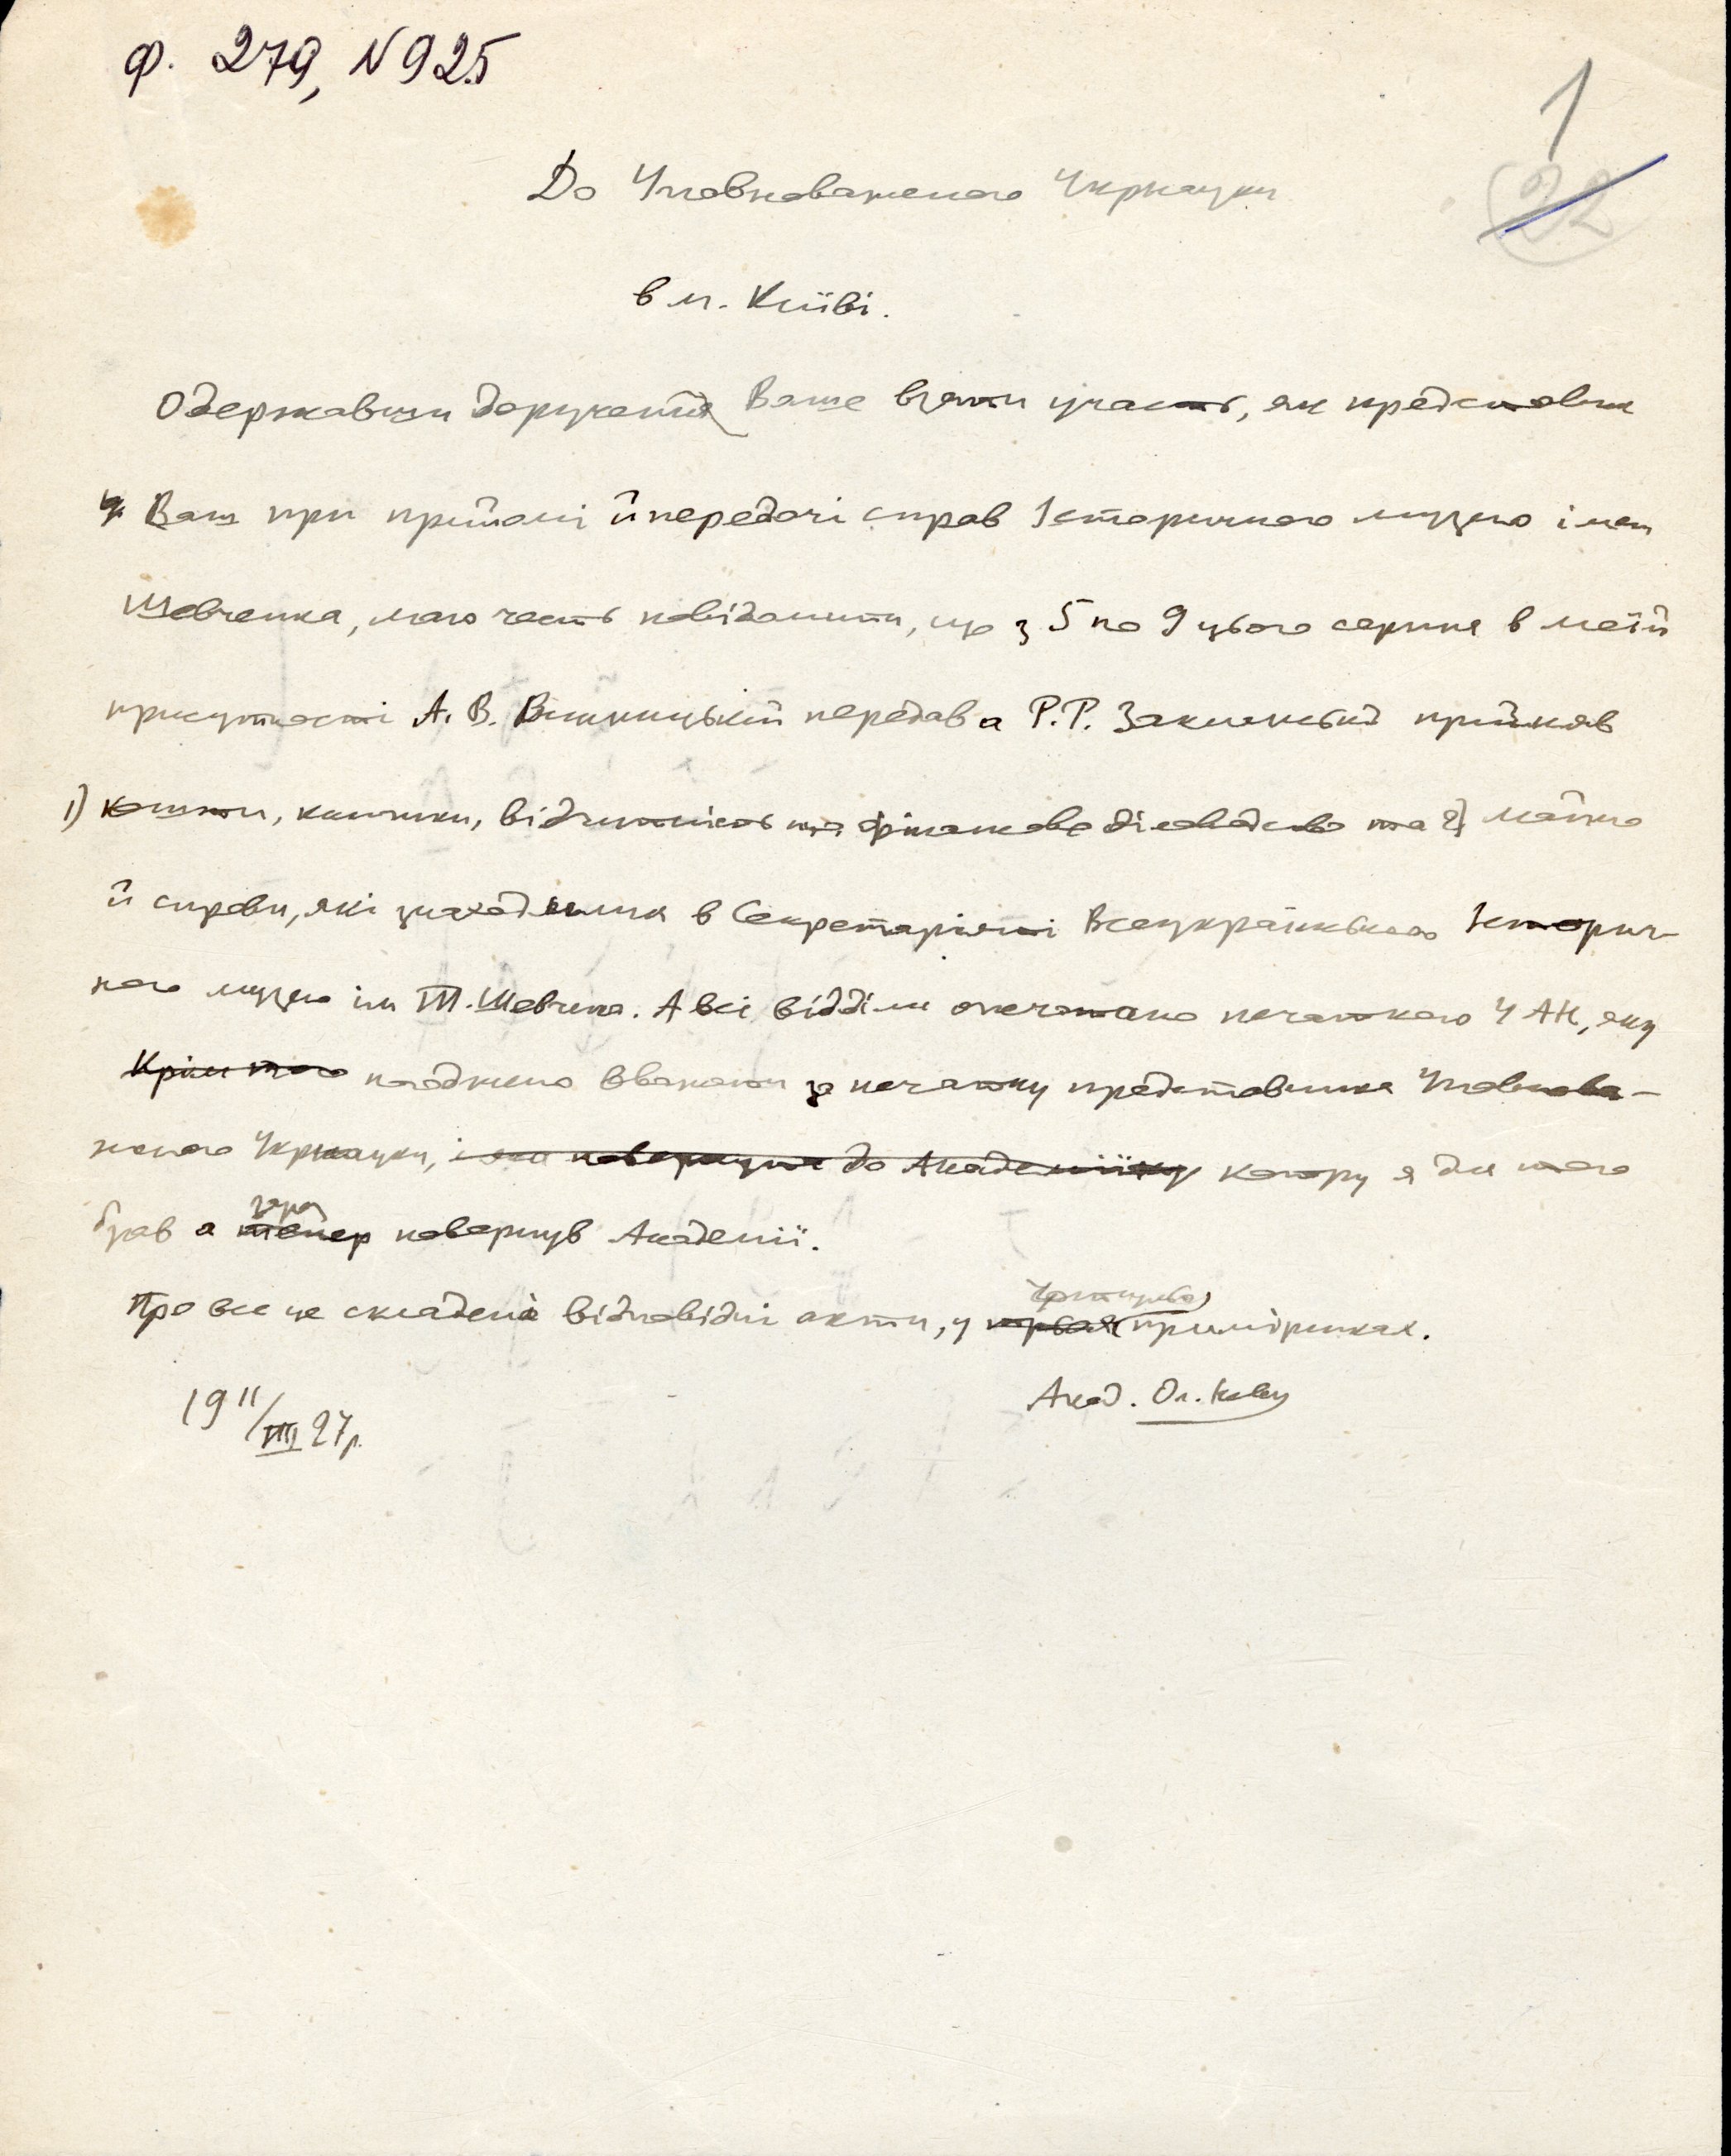 Ф. 279, N 925
1
22
До Уповноваженого Укрнауки
в м. Київі.
Одержавши доручення Ваше взяти участь, як представник
Ваш при прийомі й передачі справ Історичного музею імен
Шевченка, маю честь повідомити, що з 5 по 9 цього серпня в моїй
присутності А. В. Винницький передав а Р. Р. Заклинський прийняв
1) кошти, книжки, відчитність та фінансове діловодство та 2) майно
й справи, які знаходилися в Секретаріяті Всеукраїнського Історич-
ного музею ім Т. Шевченка. А всі відділи опечатано печаткою УАН, яку
Крім того погоджено вважати за печатку представника Уповнова-
женого Укрнауки, і яка повернута до Академії котору я для того
зараз
брав а тепер повернув Академії.
Про все це складені відповідні акти, у примірниках.
Акад. Ол. Нов
19 11/VIII 27 р.